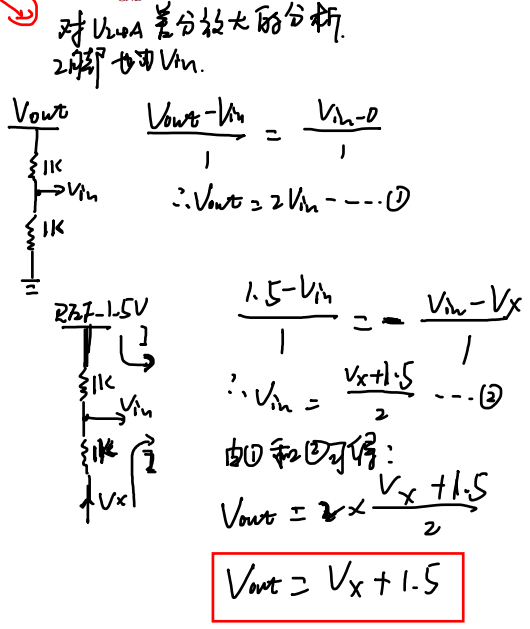 对V240A差分放大的分析.
2脚也即Vin.
Vout
1K
Vin
1K
Vout-Vin / 1 = Vin-0 / 1
∴Vout=2Vin-----①
REF_1.5V
I
1K
Vin
1K
I
Vx
1.5-Vin / 1 = - Vin-Vx / 1
∴Vin = Vx+1.5 / 2 ---②
由①和②可得:
Vout = 2× Vx+1.5 / 2
Vout = Vx+1.5